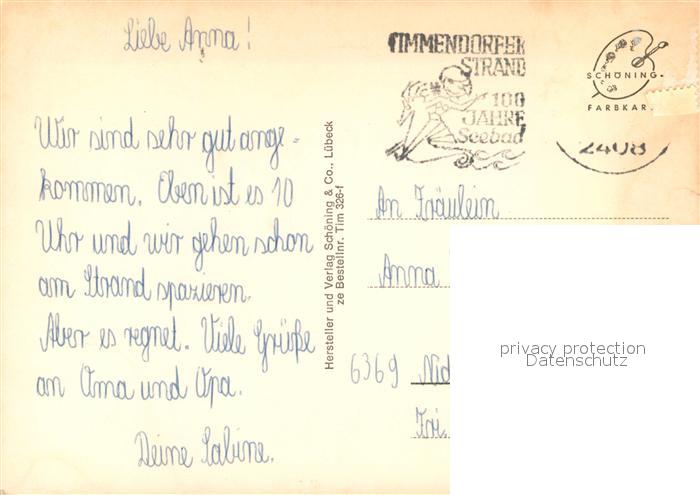 Liebe Anna!
Wir sind sehr gut ange=
kommen. Eben ist es 10
Uhr und wir gehen schon
am Strand spazieren.
Aber es regnet. Viele Grüße
an Oma und Opa.
Deine Sabine.
Hersteller und Verlag Schöning & Co., Lübeck
ze Bestellnr. Tim 326-f
TIMMENDORFER
STRAND
100
JAHRE
Seebad
2408
SCHÖNING-
FARBKAR.
An Fräulein
Anna
6369 Nid
Fri.
privacy protection
Datenschutz